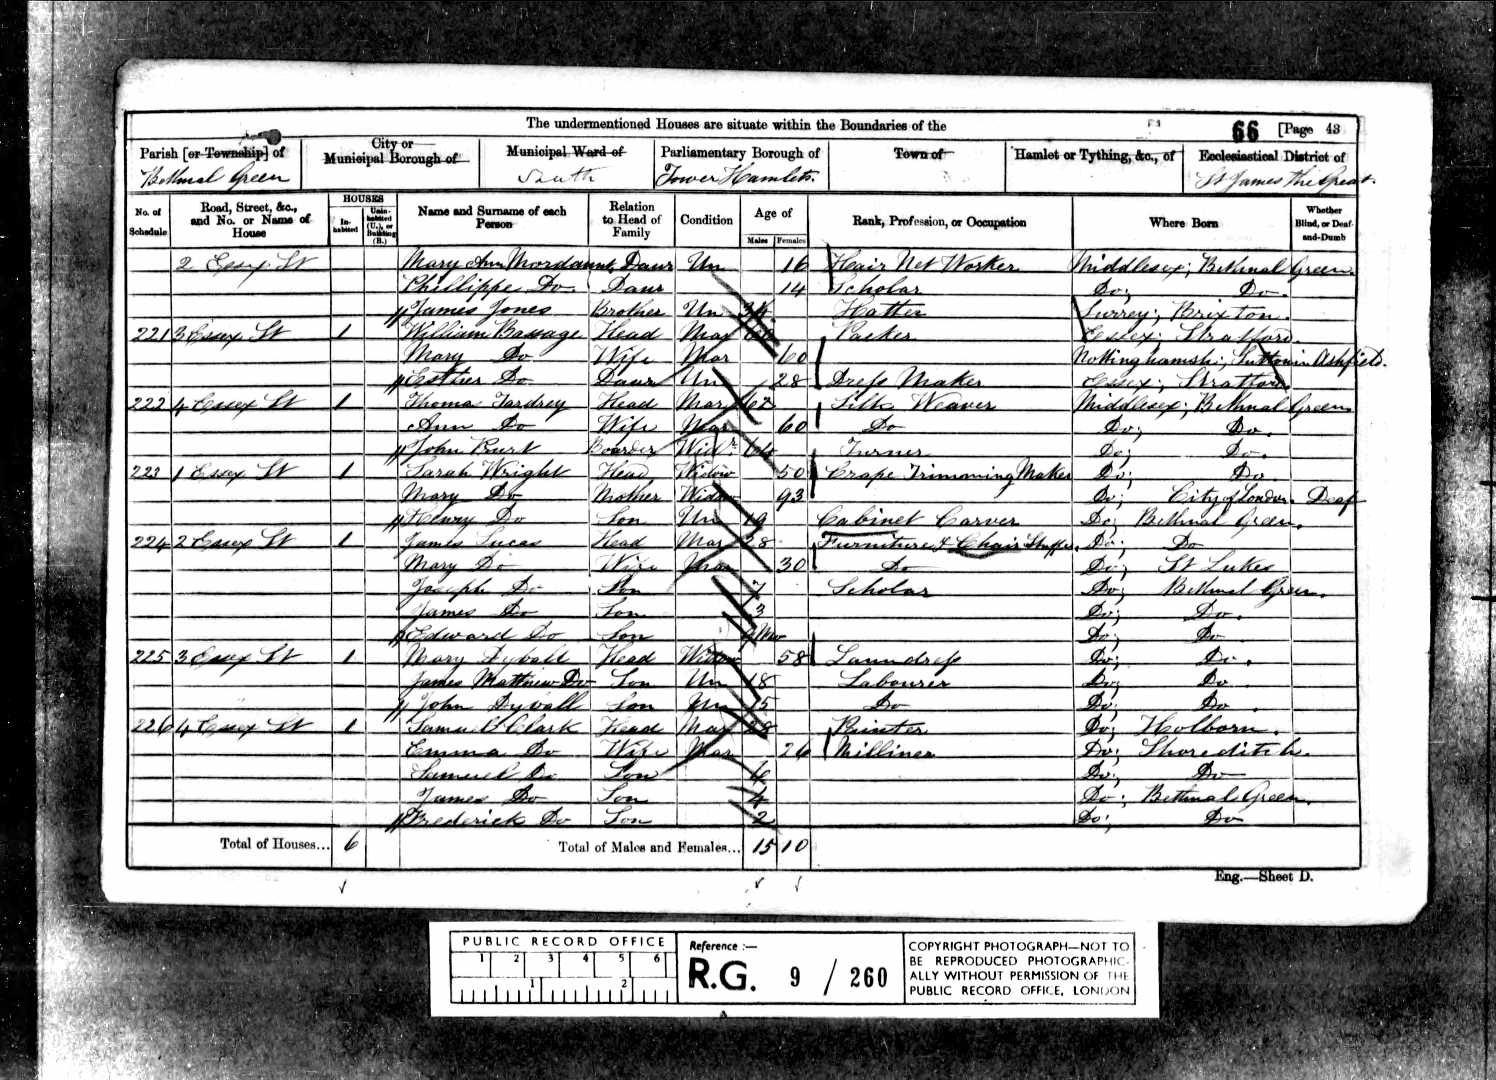 The undermentioned Houses are situate within the Boundaries of the 66 [Page 43
Parish [or Township] of City or Municipal Borough of Municipal Ward of Parliamentary Borough of Town of Hamlet or Tything, &c., of Ecclesiastical District of
Bethnal Green South Tower Hamlets. St James the Great.
No. of Schedule Road, Street, &c., and No. or Name of House HOUSES Inhabited Uninhabited (U.), or Building (B.) Name and Surname of each Person Relation to Head of Family Condition Age of Males Females Rank, Profession, or Occupation Where Born Whether Blind, or Deaf-and-Dumb
2 Essex St Mary Ann Mordaunt Daur Un 16 Hair Net Worker Middlesex; Bethnal Green.
Phillippe Do. Daur 14 Scholar Do; Do.
James Jones Brother Un 34 Hatter Surrey; Brixton.
221 3 Essex St 1 William Bassage Head Mar 60 Packer Essex; Stratford.
Mary Do Wife Mar 60 Nottinghamsh; Sutton in Ashfield.
Esther Do Daur Un 28 Dress Maker Essex; Stratford.
222 4 Essex St 1 Thomas Tardrey Head Mar 62 Silk Weaver Middlesex; Bethnal Green
Ann Do Wife Mar 60 Do Do; Do.
John Burt Boarder Widr 64 Turner Do; Do.
223 1 Essex St 1 Sarah Wright Head Widow 50 Crape Trimming Maker Do; Do.
Mary Do Mother Widow 93 Do; City of London. Deaf
Henry Do Son Un 19 Cabinet Carver Do; Bethnal Green.
224 2 Essex St 1 James Lucas Head Mar 28 Furniture & Chair Stuffer. Do; Do
Mary Do Wife Mar 30 Do Do; St Lukes
Joseph Do Son 7 Scholar Do; Bethnal Green.
James Do Son 3 Do; Do.
Edward Do Son Mo Do; Do
225 3 Essex St 1 Mary Dyball Head Widow 58 Laundress Do; Do.
James Matthew Do Son Un 18 Labourer Do; Do
John Dyball Son Un 15 Do Do; Do.
226 4 Essex St 1 Samul Clark Head Mar 28 Printer Do; Holborn.
Emma Do Wife Mar 26 Milliner Do; Shoreditch.
Samuel Do Son 6 Do; Do
James Do Son 4 Do; Bethnal Green.
Frederick Do Son 2 Do; Do
Total of Houses... 6 Total of Males and Females... 15 10
Eng.—Sheet D.
PUBLIC RECORD OFFICE
1 2 3 4 5 6
1 2
Reference :—
R.G. 9 / 260
COPYRIGHT PHOTOGRAPH—NOT TO
BE REPRODUCED PHOTOGRAPHIC-
ALLY WITHOUT PERMISSION OF THE
PUBLIC RECORD OFFICE, LONDON